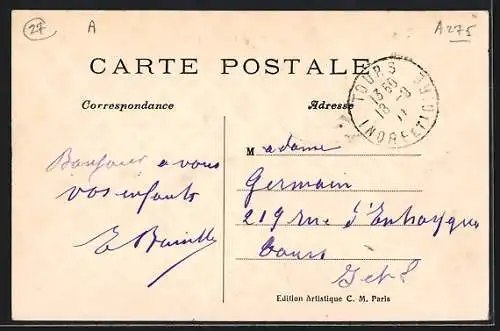 27
A
A275
CARTE POSTALE
Correspondance
Adresse
TOURS
INDRE-ET-LOIRE
Bonjour a vous
vos enfants
Madame
Germain
219 rue d'Entraygues
Tours
I et L
Edition Artistique C. M. Paris